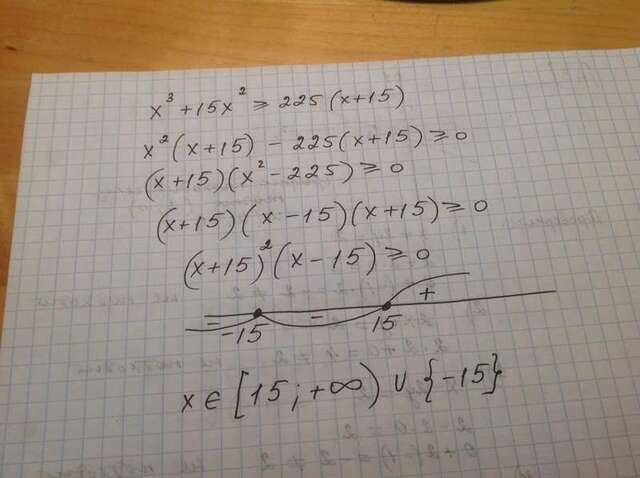 x³ + 15x² ≥ 225(x+15)
x²(x+15) - 225(x+15) ≥ 0
(x+15)(x² - 225) ≥ 0
(x+15)(x-15)(x+15) ≥ 0
(x+15)²(x-15) ≥ 0
- - +
-15 15
x ∈ [15; +∞) ∪ {-15}